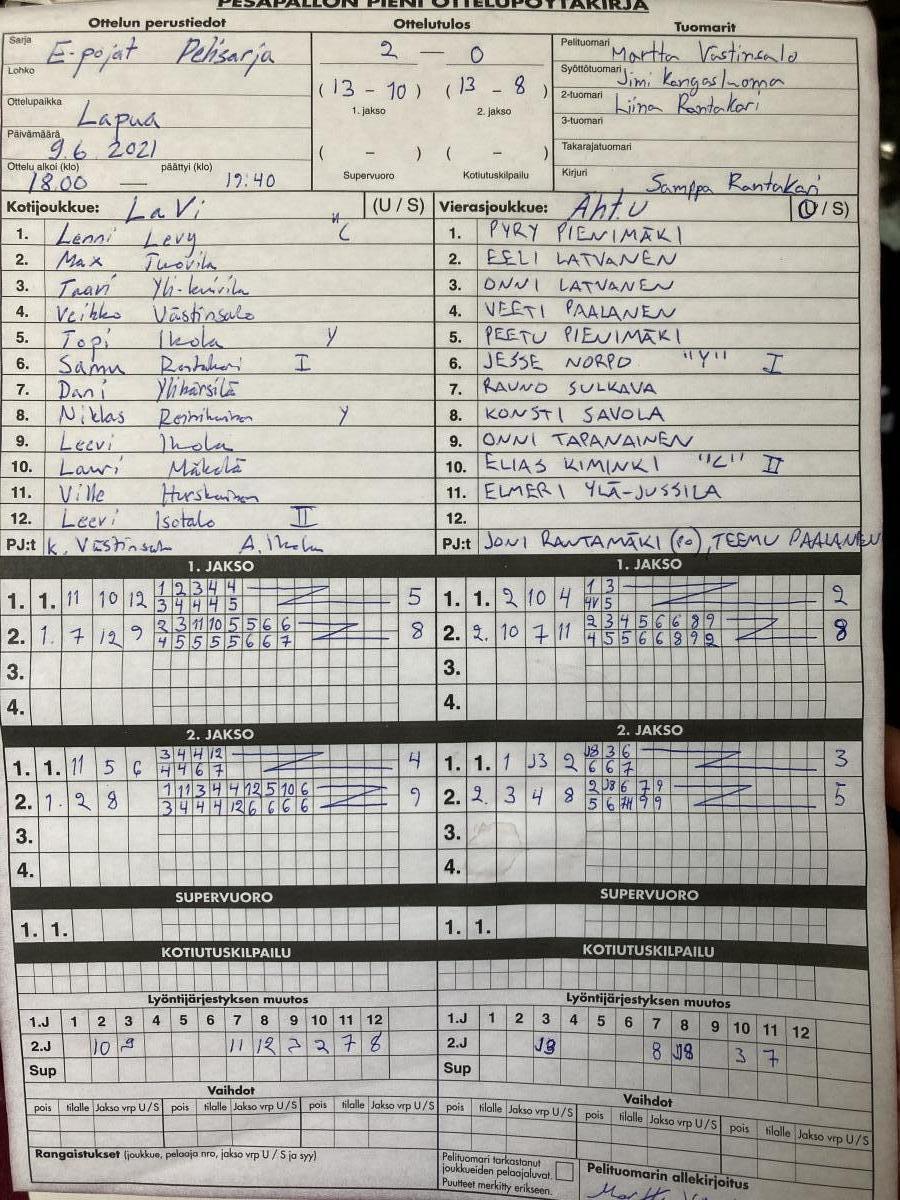 PESÄPALLON PIENI OTTELUPÖYTÄKIRJA
Ottelun perustiedot Ottelutulos Tuomarit
Sarja E-pojat Pelisarja
Lohko
Ottelupaikka Lapua
Päivämäärä 9.6 2021
Ottelu alkoi (klo) päättyi (klo)
18.00 — 19:40
2 — 0
(13 - 10) (13 - 8)
1. jakso 2. jakso
( - ) ( - )
Supervuoro Kotiutuskilpailu
Pelituomari Martta Västinsalo
Syöttötuomari Jimi Kangasluoma
2-tuomari Liina Rantakari
3-tuomari
Takarajatuomari
Kirjuri Samppa Rantakari
Kotijoukkue: LaVi (U / S)
1. Lenni Levy "C
2. Max Tuovila
3. Taavi
4. Veikko Västinsalo
5. Topi Ikola Y
6. Samu Rantakari I
7. Dani Ylihärsilä
8. Niklas Y
9. Leevi Ikola
10. Lauri Mäkelä
11. Ville
12. Leevi Isotalo II
PJ:t K. Västinsalo A. Ikola
Vierasjoukkue: AhtU (U / S)
1. PYRY PIENIMÄKI
2. EELI LATVANEN
3. ONNI LATVANEN
4. VEETI PAALANEN
5. PEETU PIENIMÄKI
6. JESSE NORPO "Y" I
7. RAUNO SULKAVA
8. KONSTI SAVOLA
9. ONNI TAPANAINEN
10. ELIAS KIMINKI "C" II
11. ELMERI YLÄ-JUSSILA
12.
PJ:t JONI RANTAMÄKI (PO), TEEMU PAALANEN
1. JAKSO
1. 1. 11 10 12 1 2 3 4 4 5
3 4 4 4 5
2. 1. 7 12 9 2 3 11 10 5 5 6 6 8
4 5 5 5 5 6 6 7
3.
4.
1. JAKSO
1. 1. 2 10 4 1 3 2
4 5
2. 2. 10 7 11 2 3 4 5 6 6 8 9 8
4 5 5 6 6 8 9 2
3.
4.
2. JAKSO
1. 1. 11 5 6 3 4 4 12 4
4 4 6 7
2. 1. 2 8 1 11 3 4 4 12 5 10 6 9
3 4 4 4 12 6 6 6 6
3.
4.
2. JAKSO
1. 1. 1 J3 2 J8 3 6 3
6 6 7
2. 2. 3 4 8 2 J8 6 7 9 5
5 6 9 9
3.
4.
SUPERVUORO
1. 1.
SUPERVUORO
1. 1.
KOTIUTUSKILPAILU
KOTIUTUSKILPAILU
Lyöntijärjestyksen muutos
1.J 1 2 3 4 5 6 7 8 9 10 11 12
2.J 10 9 11 12 3 2 7 8
Sup
Lyöntijärjestyksen muutos
1.J 1 2 3 4 5 6 7 8 9 10 11 12
2.J 8 J8 3 7
Sup
Vaihdot
pois tilalle Jakso vrp U / S pois tilalle Jakso vrp U / S pois tilalle Jakso vrp U / S
Vaihdot
pois tilalle Jakso vrp U / S pois tilalle Jakso vrp U / S pois tilalle Jakso vrp U / S
Rangaistukset (joukkue, pelaaja nro, jakso vrp U / S ja syy)
Pelituomari tarkastanut
joukkueiden pelaajaluvat.
Puutteet merkitty erikseen.
Pelituomarin allekirjoitus